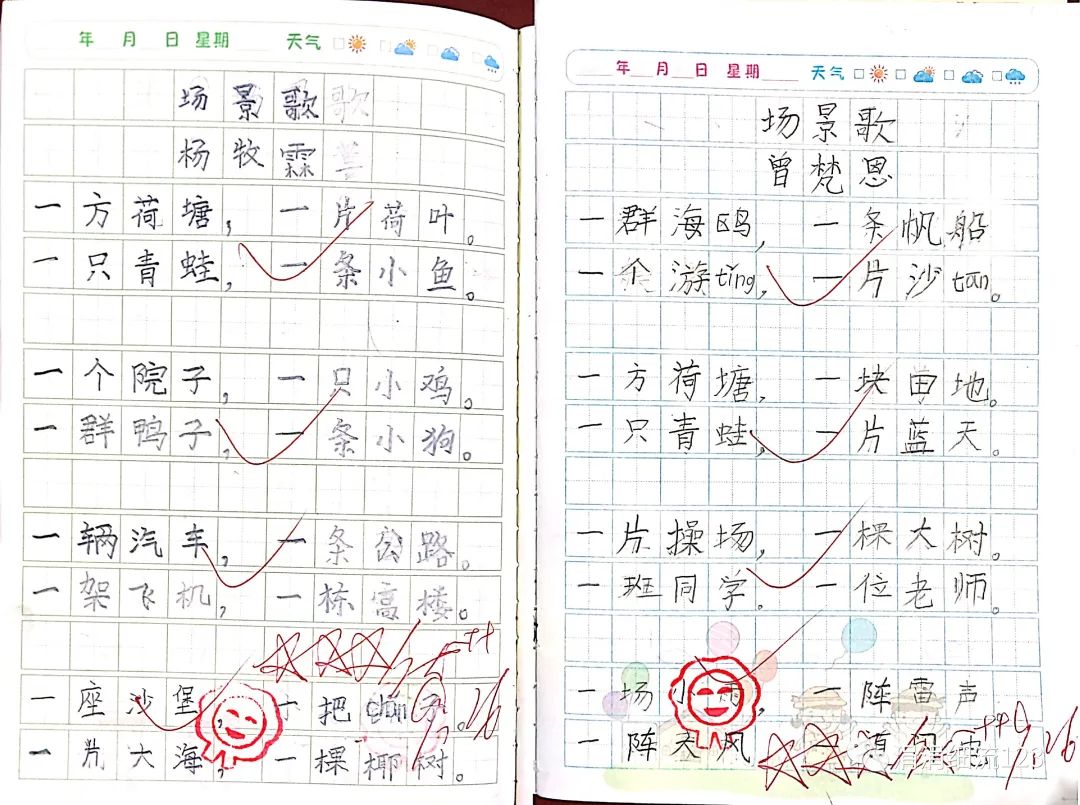 年 月 日 星期 天气
场景歌
杨牧霖
一方荷塘，一片荷叶。
一只青蛙，一条小鱼。
一个院子，一只小鸡。
一群鸭子，一条小狗。
一辆汽车，一条公路。
一架飞机，一栋高楼。
一座沙堡，一把
一片大海，一棵椰树。
年 月 日 星期 天气
场景歌
曾梵恩
一群海鸥，一条帆船
一个游tǐng，一片沙tān。
一方荷塘，一块田地。
一只青蛙，一片蓝天。
一片操场，一棵大树。
一班同学。一位老师。
一场小雨，一阵雷声
一阵大风